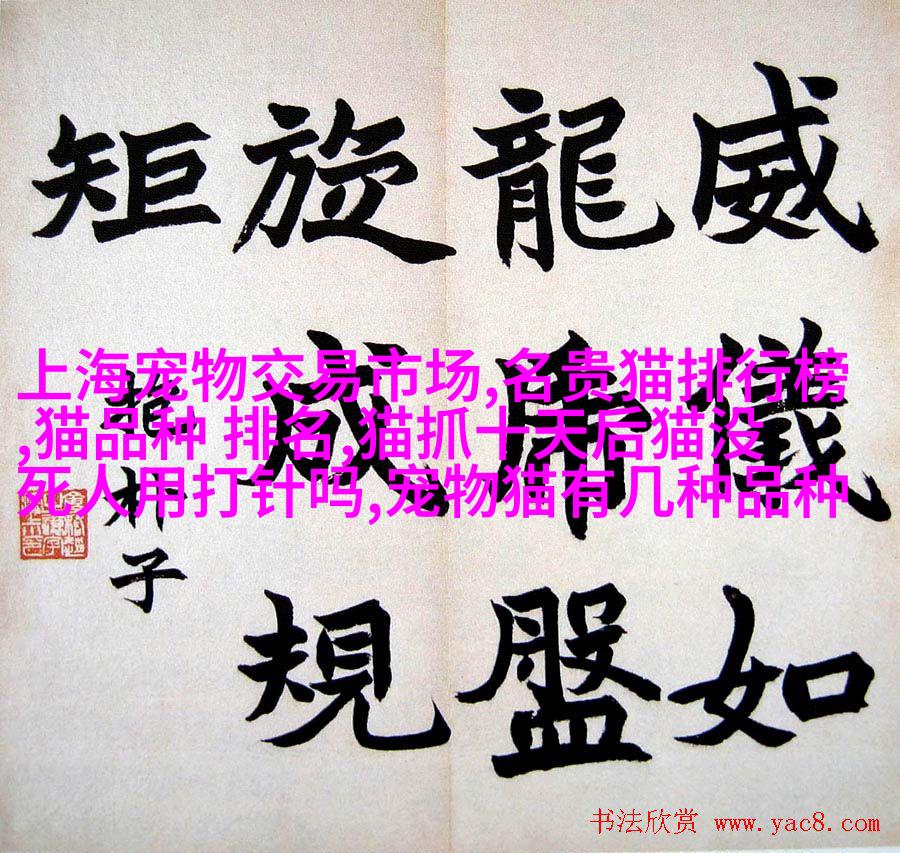 威儀如
龍盤
旋成規
矩
子
上海宠物交易市场,名贵猫排行榜
,猫品种 排名,猫抓十天后猫没
死人用打针吗,宠物猫有几种品种
书法欣赏 www.yac8.com